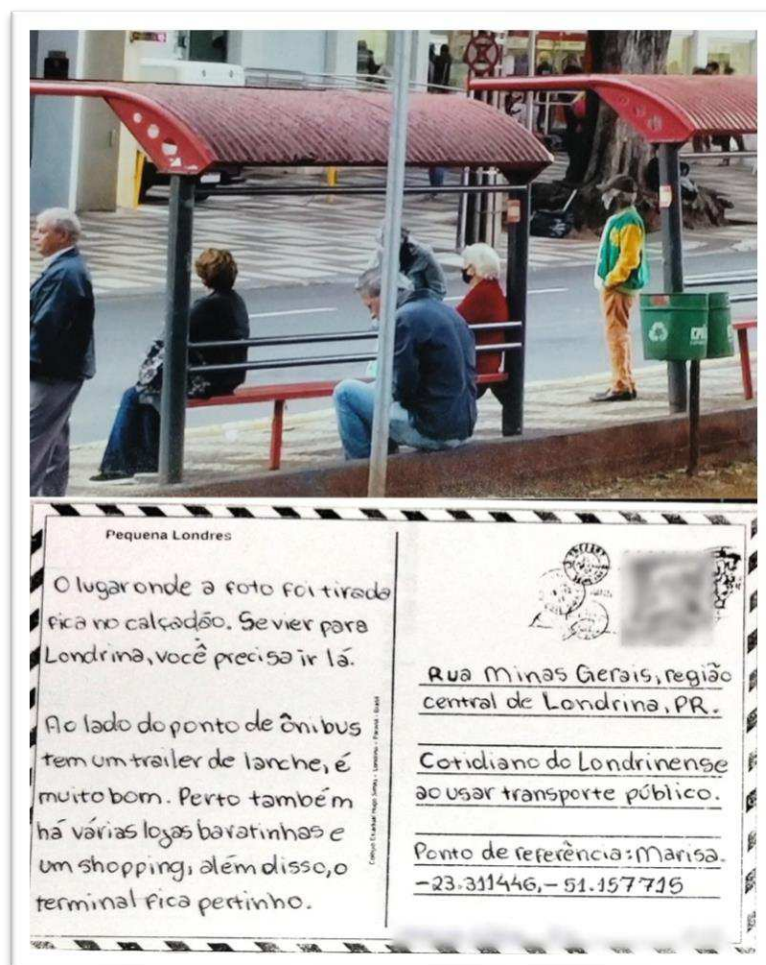 Pequena Londres
O lugar onde a foto foi tirada
fica no calçadão. Se vier para
Londrina, você precisa ir lá.
Ao lado do ponto de ônibus
tem um trailer de lanche, é
muito bom. Perto também
há várias lojas baratinhas e
um shopping, além disso, o
terminal fica pertinho.
Colégio Estadual Hugo Simas - Londrina - Paraná - Brasil
Rua Minas Gerais, região
central de Londrina, PR.
Cotidiano do Londrinense
ao usar transporte público.
Ponto de referência: Marisa.
-23.311446, - 51.157715